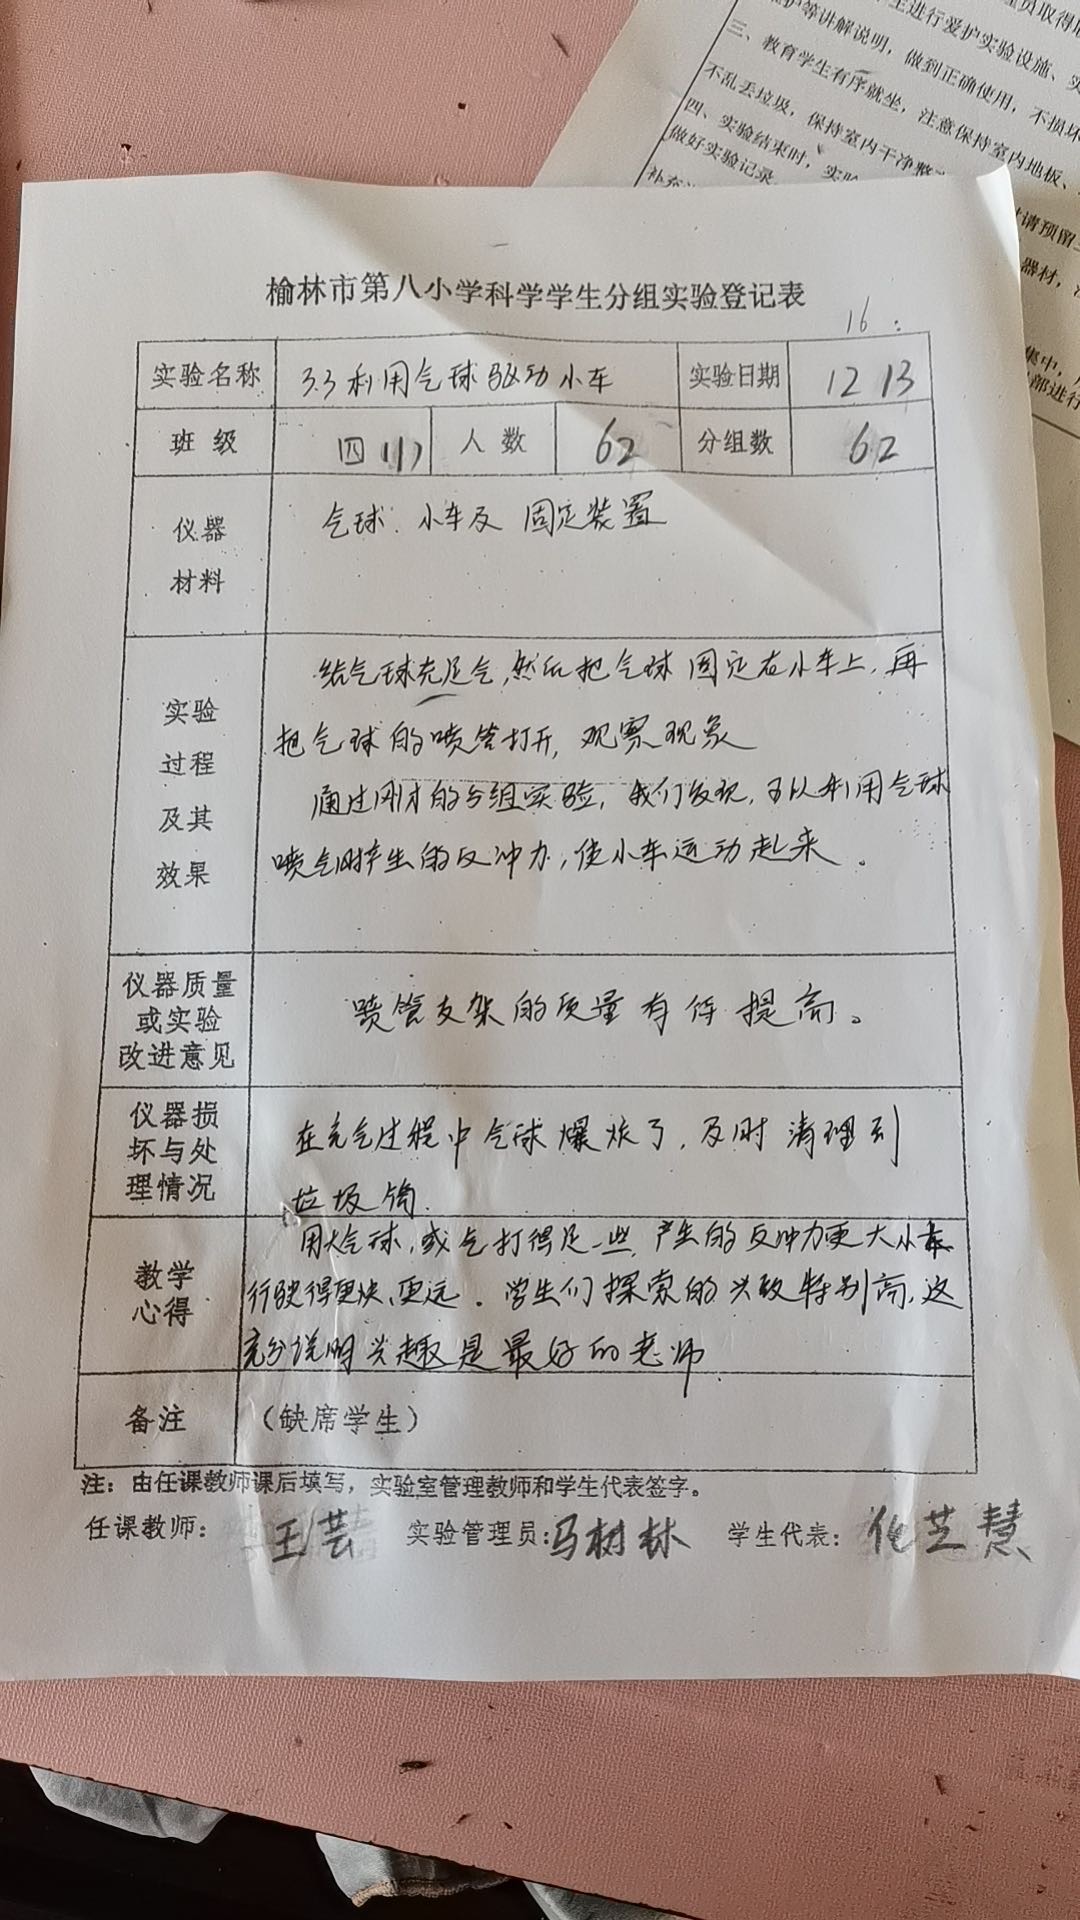 员取得
生进行爱护实验设施、实
维护等讲解说明，做到正确使用，不损坏
三、教育学生有序就坐，注意保持室内地板、
不乱丢垃圾，保持室内干净整
四、实验结束时，实验
做好实验记录
补充
请预留
器材，
集中，
部进行
榆林市第八小学科学学生分组实验登记表
16:
实验名称 3.3利用气球驱动小车 实验日期 12 13
班 级 四(1) 人 数 62 分组数 62
仪器
材料
气球、小车及 固定装置
实验
过程
及其
效果
给气球充足气,然后把气球固定在小车上,再
把气球的喷管打开,观察现象
通过刚才的分组实验,我们发现,可以利用气球
喷气时产生的反冲力,使小车运动起来。
仪器质量
或实验
改进意见
喷管支架的质量有待提高。
仪器损
坏与处
理情况
在充气过程中气球爆炸了,及时清理到
垃圾筒.
教学
心得
用大气球,或气打得足一些,产生的反冲力更大小车
行驶得更快、更远。学生们探索的兴致特别高,这
充分说明兴趣是最好的老师.
备注 （缺席学生）
注：由任课教师课后填写，实验室管理教师和学生代表签字。
任课教师：王芸 实验管理员:马树林 学生代表：化芝慧